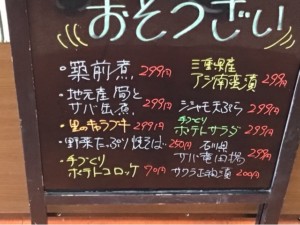 おそうざい
・築前煮 299円
・地元産 筍と
サバ缶煮 299円
・里のキャラブキ 299円
・野菜たっぷり焼そば 250円
・手づくり
ポテトコロッケ 70円
三重県産
アジ南蛮漬 299円
ジャモ天ぷら 299円
手づくり
ポテトサラダ 299円
石川県
サバ 299円
サクラ 200円